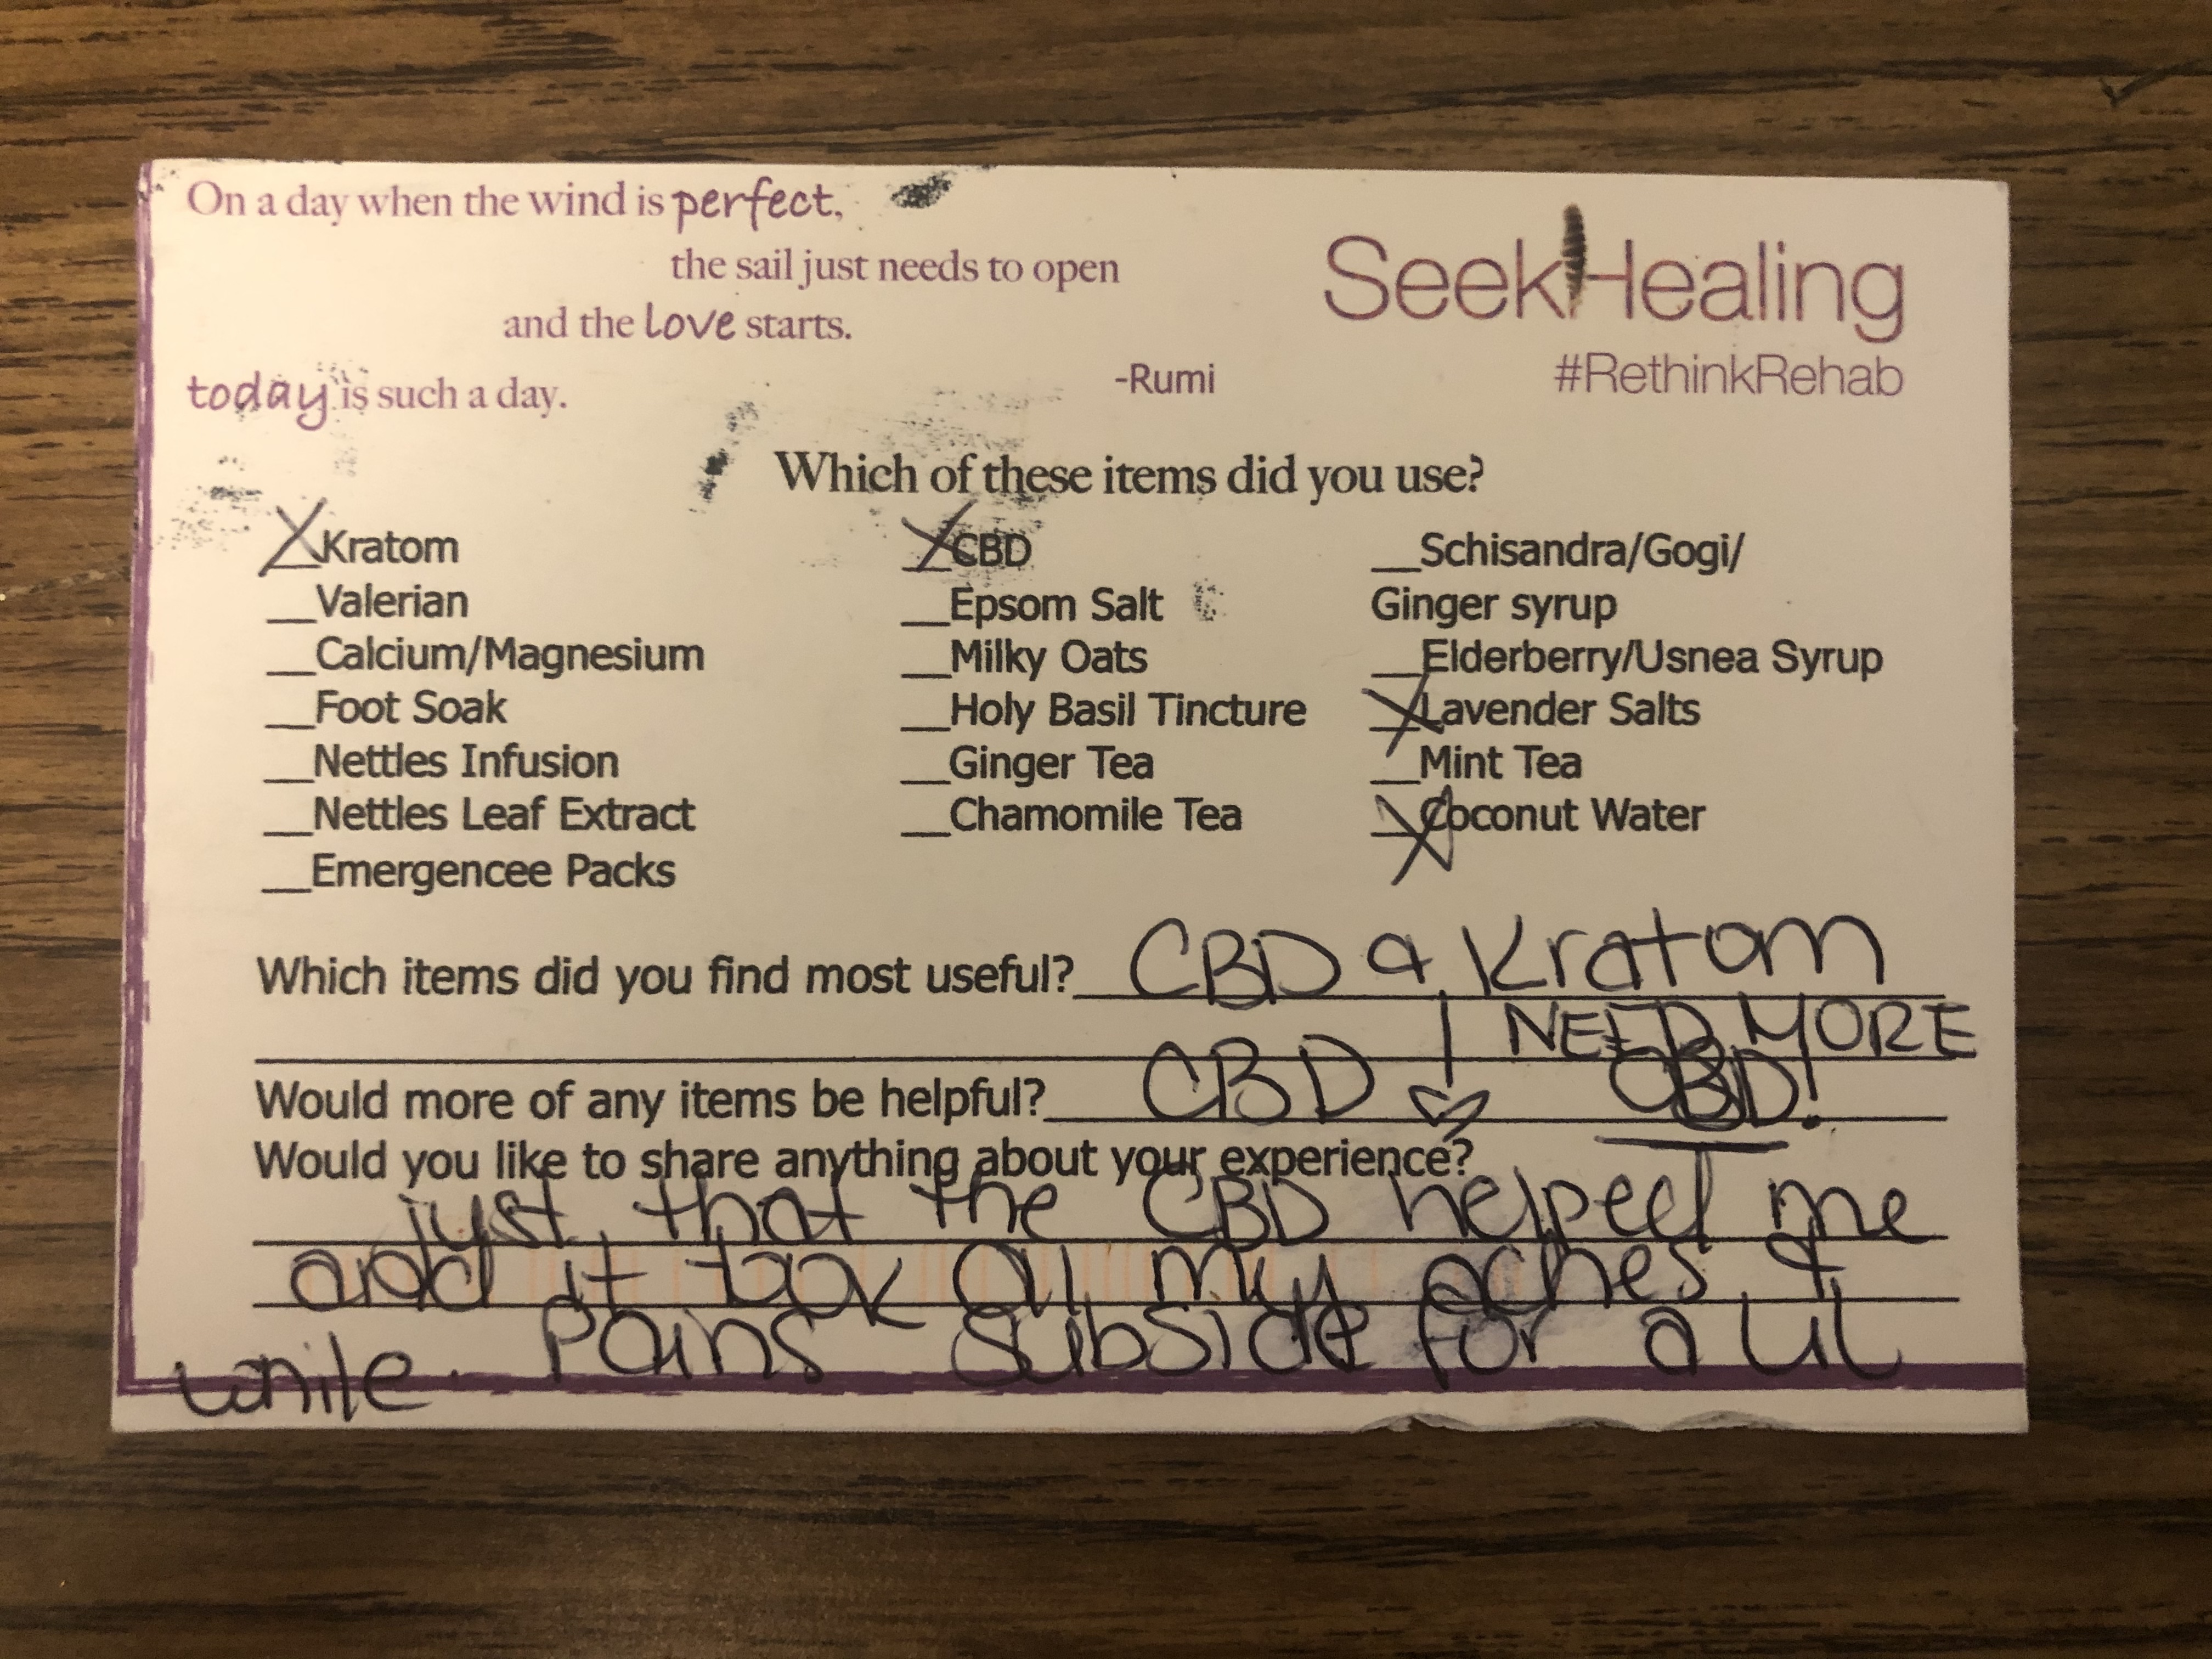 On a day when the wind is perfect,
the sail just needs to open
and the love starts.
today is such a day.
-Rumi
SeekHealing
#RethinkRehab
Which of these items did you use?
X Kratom
__Valerian
__Calcium/Magnesium
__Foot Soak
__Nettles Infusion
__Nettles Leaf Extract
__Emergencee Packs
X CBD
__Epsom Salt
__Milky Oats
__Holy Basil Tincture
__Ginger Tea
__Chamomile Tea
__Schisandra/Gogi/
Ginger syrup
__Elderberry/Usnea Syrup
X Lavender Salts
__Mint Tea
X Coconut Water
Which items did you find most useful? CBD & Kratom
I NEED MORE
CBD!
Would more of any items be helpful? CBD
Would you like to share anything about your experience?
just that the CBD helped me
and it took all my aches &
Pains subside for a lil
while.